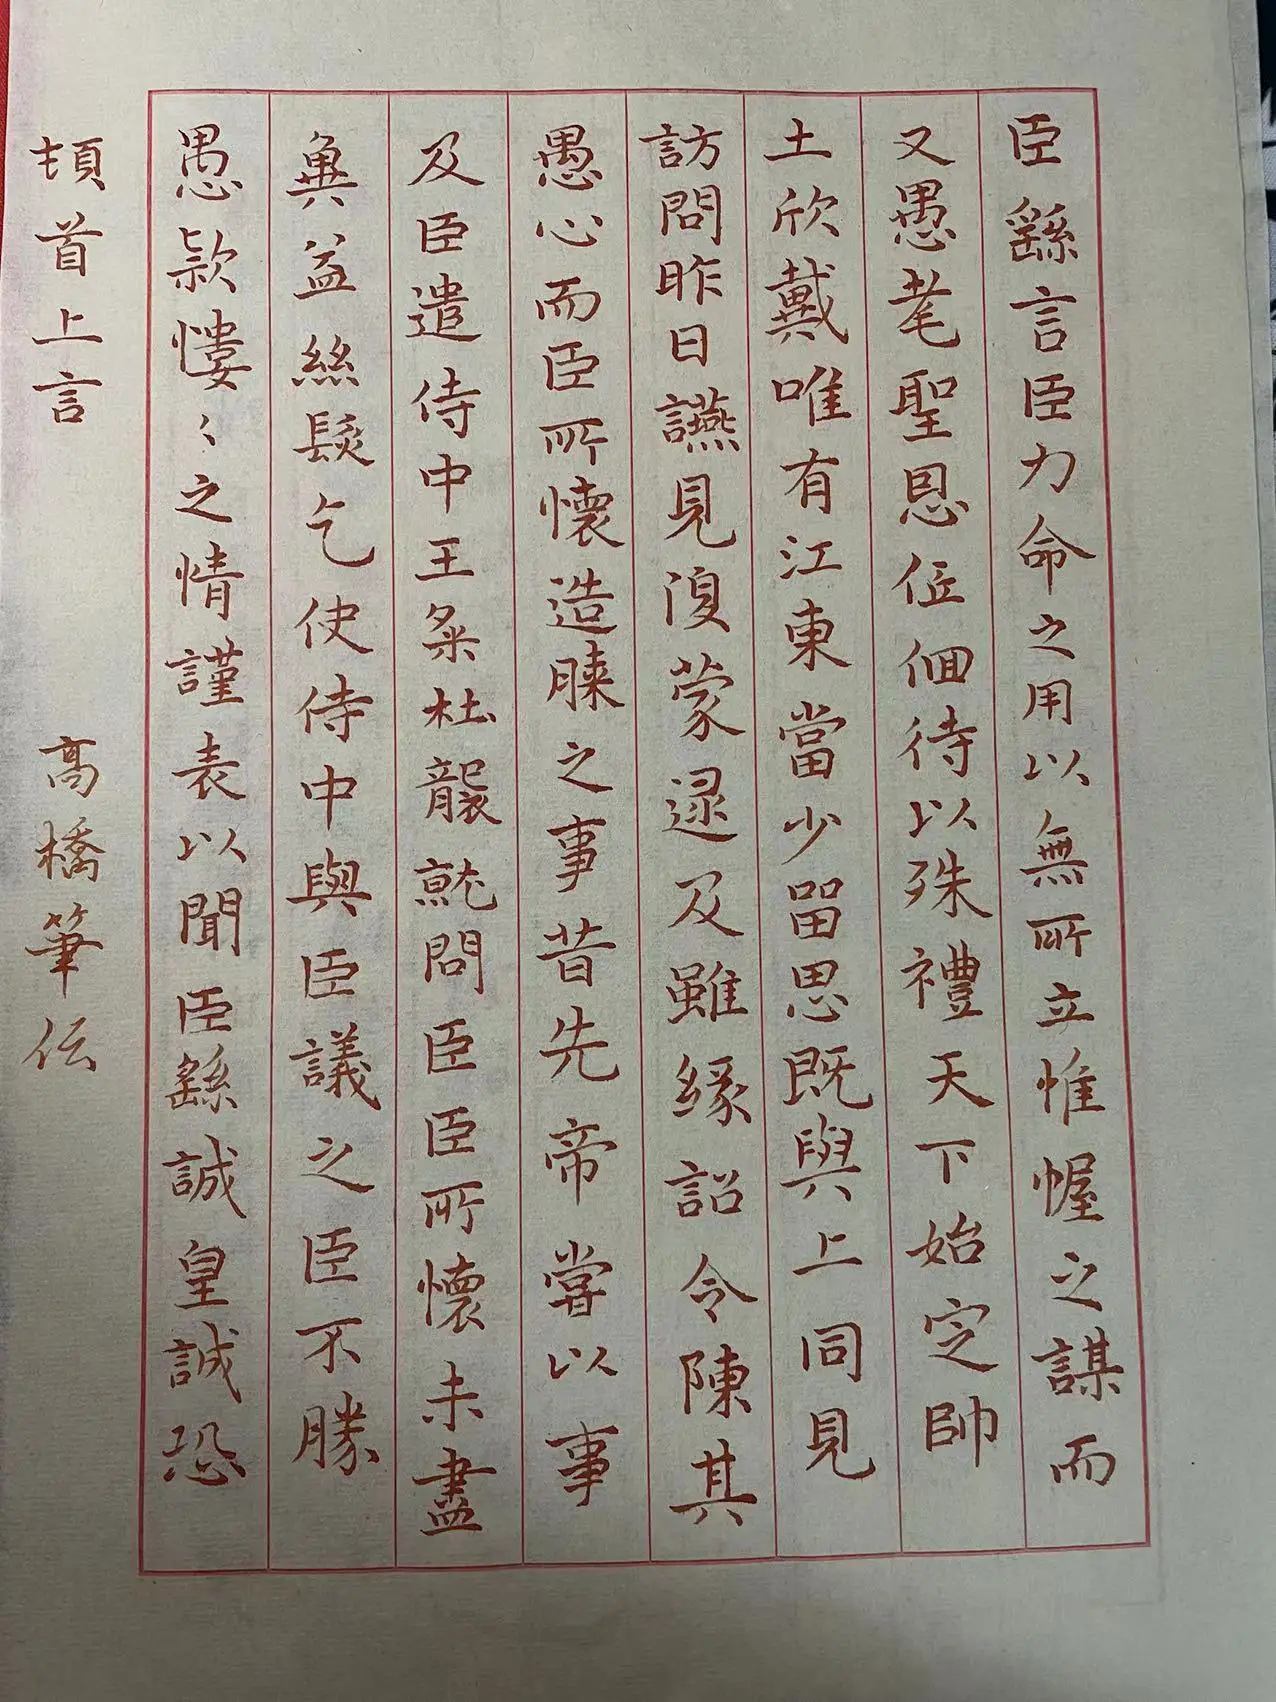 臣繇言臣力命之用以無所立惟幄之謀而
又愚耄聖恩低佪待以殊禮天下始定帥
土欣戴唯有江東當少留思既與上同見
訪問昨日讌見復蒙逮及雖緣詔令陳其
愚心而臣所懷造膝之事昔先帝嘗以事
及臣遣侍中王粲杜襲就問臣臣所懷未盡
冀益絲髮乞使侍中與臣議之臣不勝
愚款慺〻之情謹表以聞臣繇誠皇誠恐
頓首上言 高橋筆伝